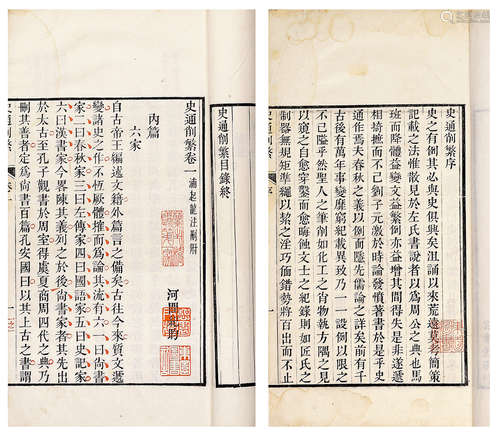 史通削繁序
史之有例其必與史俱興矣沮誦以來荒遠莫考簡策
記載之法惟散見於左氏書說者以爲周公之典也馬
班而降體益變文益繁例亦益增其間得失是非遂遞
相掎摭而不已劉子元激於時論發憤著書於是乎史
通作焉夫春秋之義以例而隱先儒論之詳矣前有千
古後有萬年事變靡窮紀載異致乃一一設例以限之
不已隘乎然聖人之筆削如化工之肖物執方隅之見
以窺之自愈穿鑿而愈晦蝕文士之紀錄則如匠氏之
制器無規矩準繩以絜之淫巧偭錯勢將百出而不止
史通削繁 序 一
史通削繁目錄終
史通削繁卷一 浦起龍注刪附
河間紀昀
內篇
六家
自古帝王編述文籍外篇言之備矣古往今來質文遞
變諸史之作不恆厥體搉而爲論其流有六一曰尙書
家二曰春秋家三曰左傳家四曰國語家五曰史記家
六曰漢書家今畧陳其義列之於後尙書家者其先出
於太古至孔子觀書於周室得虞夏商周四代之典乃
刪其善者定爲尙書百篇孔安國曰以其上古之書謂
史通削繁 卷一 一